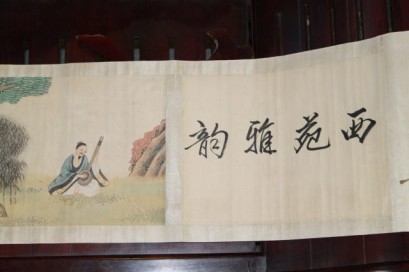 西苑雅韵